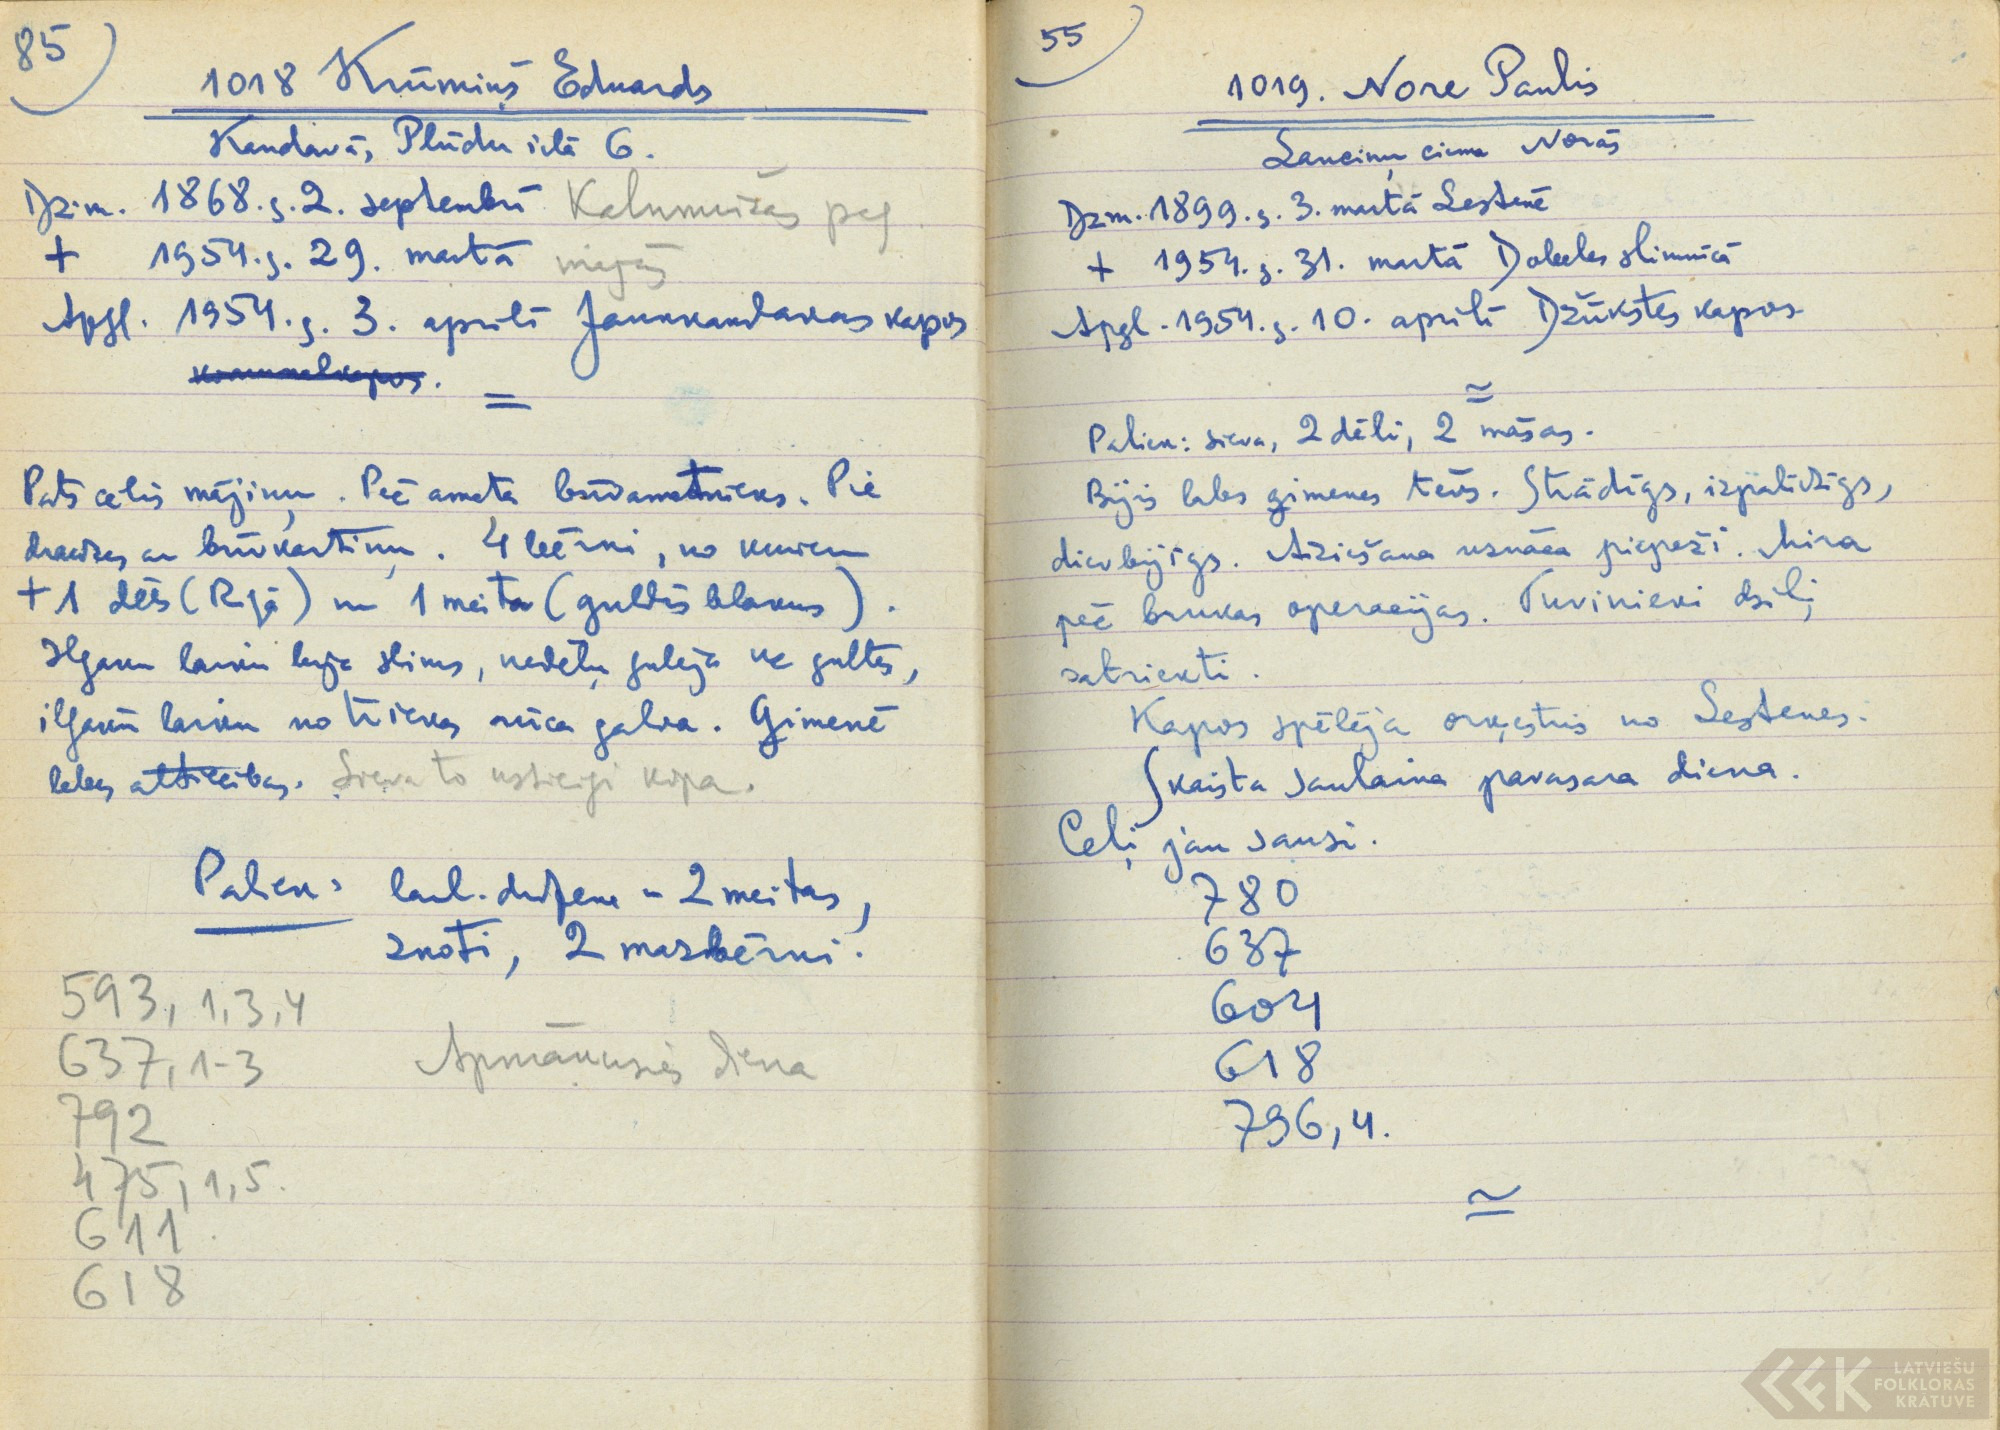 85
1018 Krūmiņš Eduards
Kandavā, Plūdu ielā 6.
Dzim. 1868.g. 2. septembrī Kalnmuižas pag
+ 1954.g. 29. martā mājās
Apgl. 1954.g. 3. aprīlī Jaunkandavas kapos
Pats cēlis mājiņu. Pēc amata būvamatnieks. Pie
draudzes ar būvkartiņu. 4 bērni, no kuriem
+ 1 dēls (Rīgā) un 1 meita (guldīs blakus).
Ilgāku laiku bija slims, nedēļu gulēja uz gultas,
ilgāku laiku no triekas galva. Ģimenē
labas attiecības. Sieva to uzticīgi kopa.
Paliek: laul. draudzene - 2 meitas,
znoti, 2 mazbērni.
593, 1,3,4
637, 1-3 Apmākusies diena
792
475, 1,5.
611
618
55
1019. Nore Paulis
Lanciņu ciema Norās
Dzm. 1899.g. 3. martā Lestenē
+ 1954.g. 31. martā Dobeles slimnīcā
Apgl. 1954.g. 10. aprīlī Džūkstes kapos
Paliek: sieva, 2 dēli, 2 māsas.
Bijis labs ģimenes tēvs. Strādīgs, izpalīdzīgs,
dievbijīgs. Aiziešana uznāca piepeši. Mira
pēc brukas operācijas. Tuvinieki dziļi
satriekti.
Kapos spēlēja orķestris no Lestenes.
Skaista saulaina pavasara diena.
Ceļi jau sausi.
780
637
604
618
796, 4.
LATVIEŠU
FOLKLORAS
KRĀTUVE